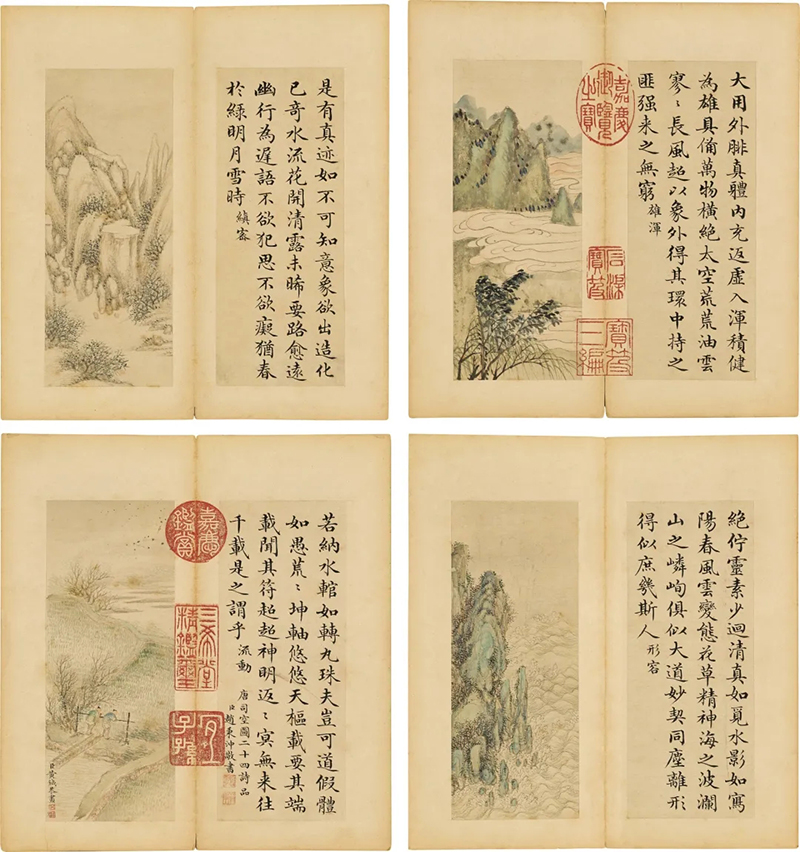 是有真迹如不可知意象欲出造化
已奇水流花開清露未晞要路愈遠
幽行為遲語不欲犯思不欲癡猶春
於綠明月雪時 縝密
大用外腓真體內充返虛入渾積健
為雄具備萬物橫絕太空荒荒油雲
寥〻長風超以象外得其環中持之
匪强来之無窮 雄渾
嘉慶
御覽
之寶
石渠
寶笈
寶笈
三編
若納水輨如轉丸珠夫豈可道假體
如愚荒〻坤軸悠悠天樞載要其端
載聞其符超超神明返〻冥無来往
千載是之謂乎 流動
唐司空圖二十四詩品
臣趙秉沖敬書
嘉慶
鑑賞
三希堂
精鑑璽
宜
子孫
臣黃鉞恭畫
絕佇靈素少迴清真如覓水影如寫
陽春風雲變態花草精神海之波瀾
山之嶙峋俱似大道妙契同塵離形
得似庶幾斯人 形容